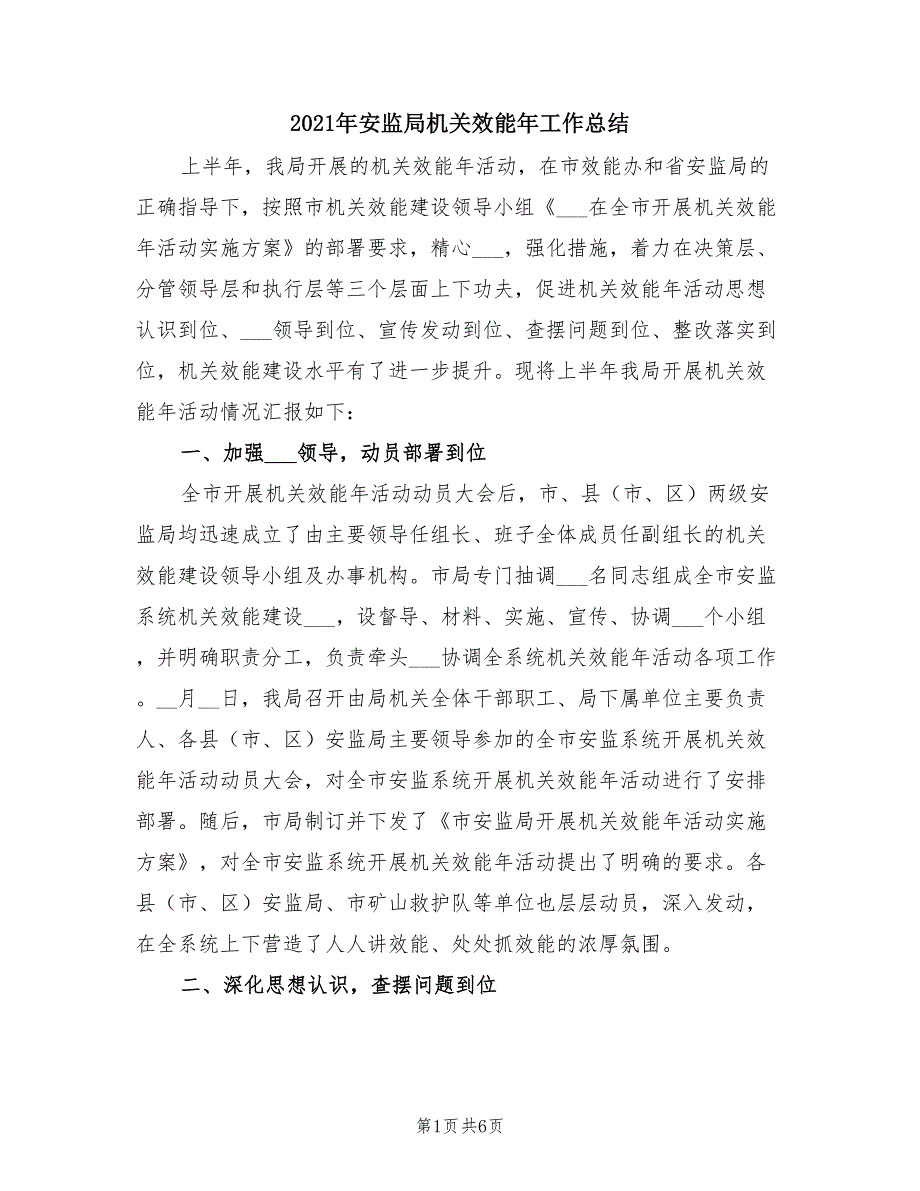 2021年安监局机关效能年工作总结
上半年，我局开展的机关效能年活动，在市效能办和省安监局的
正确指导下，按照市机关效能建设领导小组《___在全市开展机关效能
年活动实施方案》的部署要求，精心___，强化措施，着力在决策层、
分管领导层和执行层等三个层面上下功夫，促进机关效能年活动思想
认识到位、___领导到位、宣传发动到位、查摆问题到位、整改落实到
位，机关效能建设水平有了进一步提升。现将上半年我局开展机关效
能年活动情况汇报如下：
一、加强___领导，动员部署到位
全市开展机关效能年活动动员大会后，市、县（市、区）两级安
监局均迅速成立了由主要领导任组长、班子全体成员任副组长的机关
效能建设领导小组及办事机构。市局专门抽调___名同志组成全市安监
系统机关效能建设___，设督导、材料、实施、宣传、协调___个小组
，并明确职责分工，负责牵头___协调全系统机关效能年活动各项工作
。__月__日，我局召开由局机关全体干部职工、局下属单位主要负责
人、各县（市、区）安监局主要领导参加的全市安监系统开展机关效
能年活动动员大会，对全市安监系统开展机关效能年活动进行了安排
部署。随后，市局制订并下发了《市安监局开展机关效能年活动实施
方案》，对全市安监系统开展机关效能年活动提出了明确的要求。各
县（市、区）安监局、市矿山救护队等单位也层层动员，深入发动，
在全系统上下营造了人人讲效能、处处抓效能的浓厚氛围。
二、深化思想认识，查摆问题到位
第1页 共6页